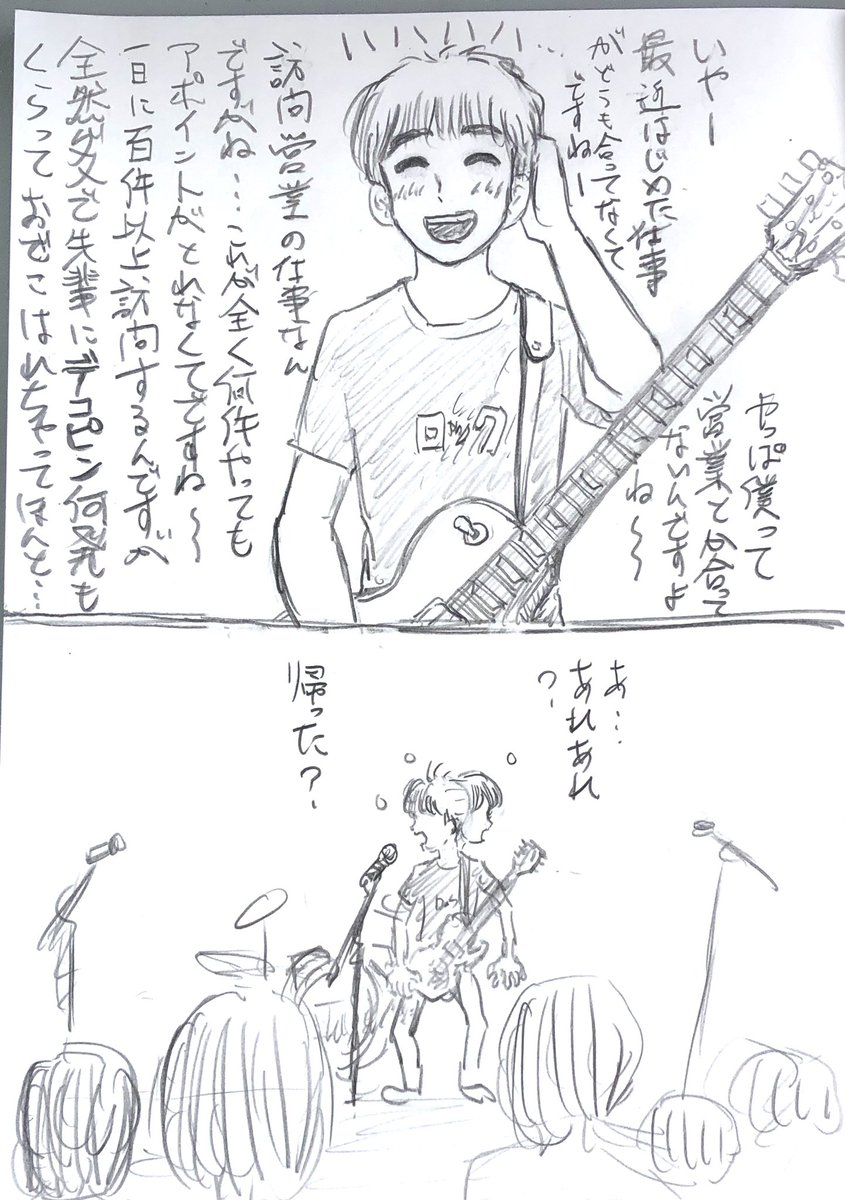 いやー
最近はじめた仕事
がどうも合ってなくて
ですねー
訪問営業の仕事なん
ですがね…これが全く何件やっても
アポイントがとれなくてですね〜〜
一日に百件以上訪問するんですが
全然ダメで先輩にデコピン何発も
くらっておでこはれちゃってほんと…
ロック
やっぱ僕って
営業とか合って
ないんですよ
ね〜〜
あ…
あれあれ
?
帰った?